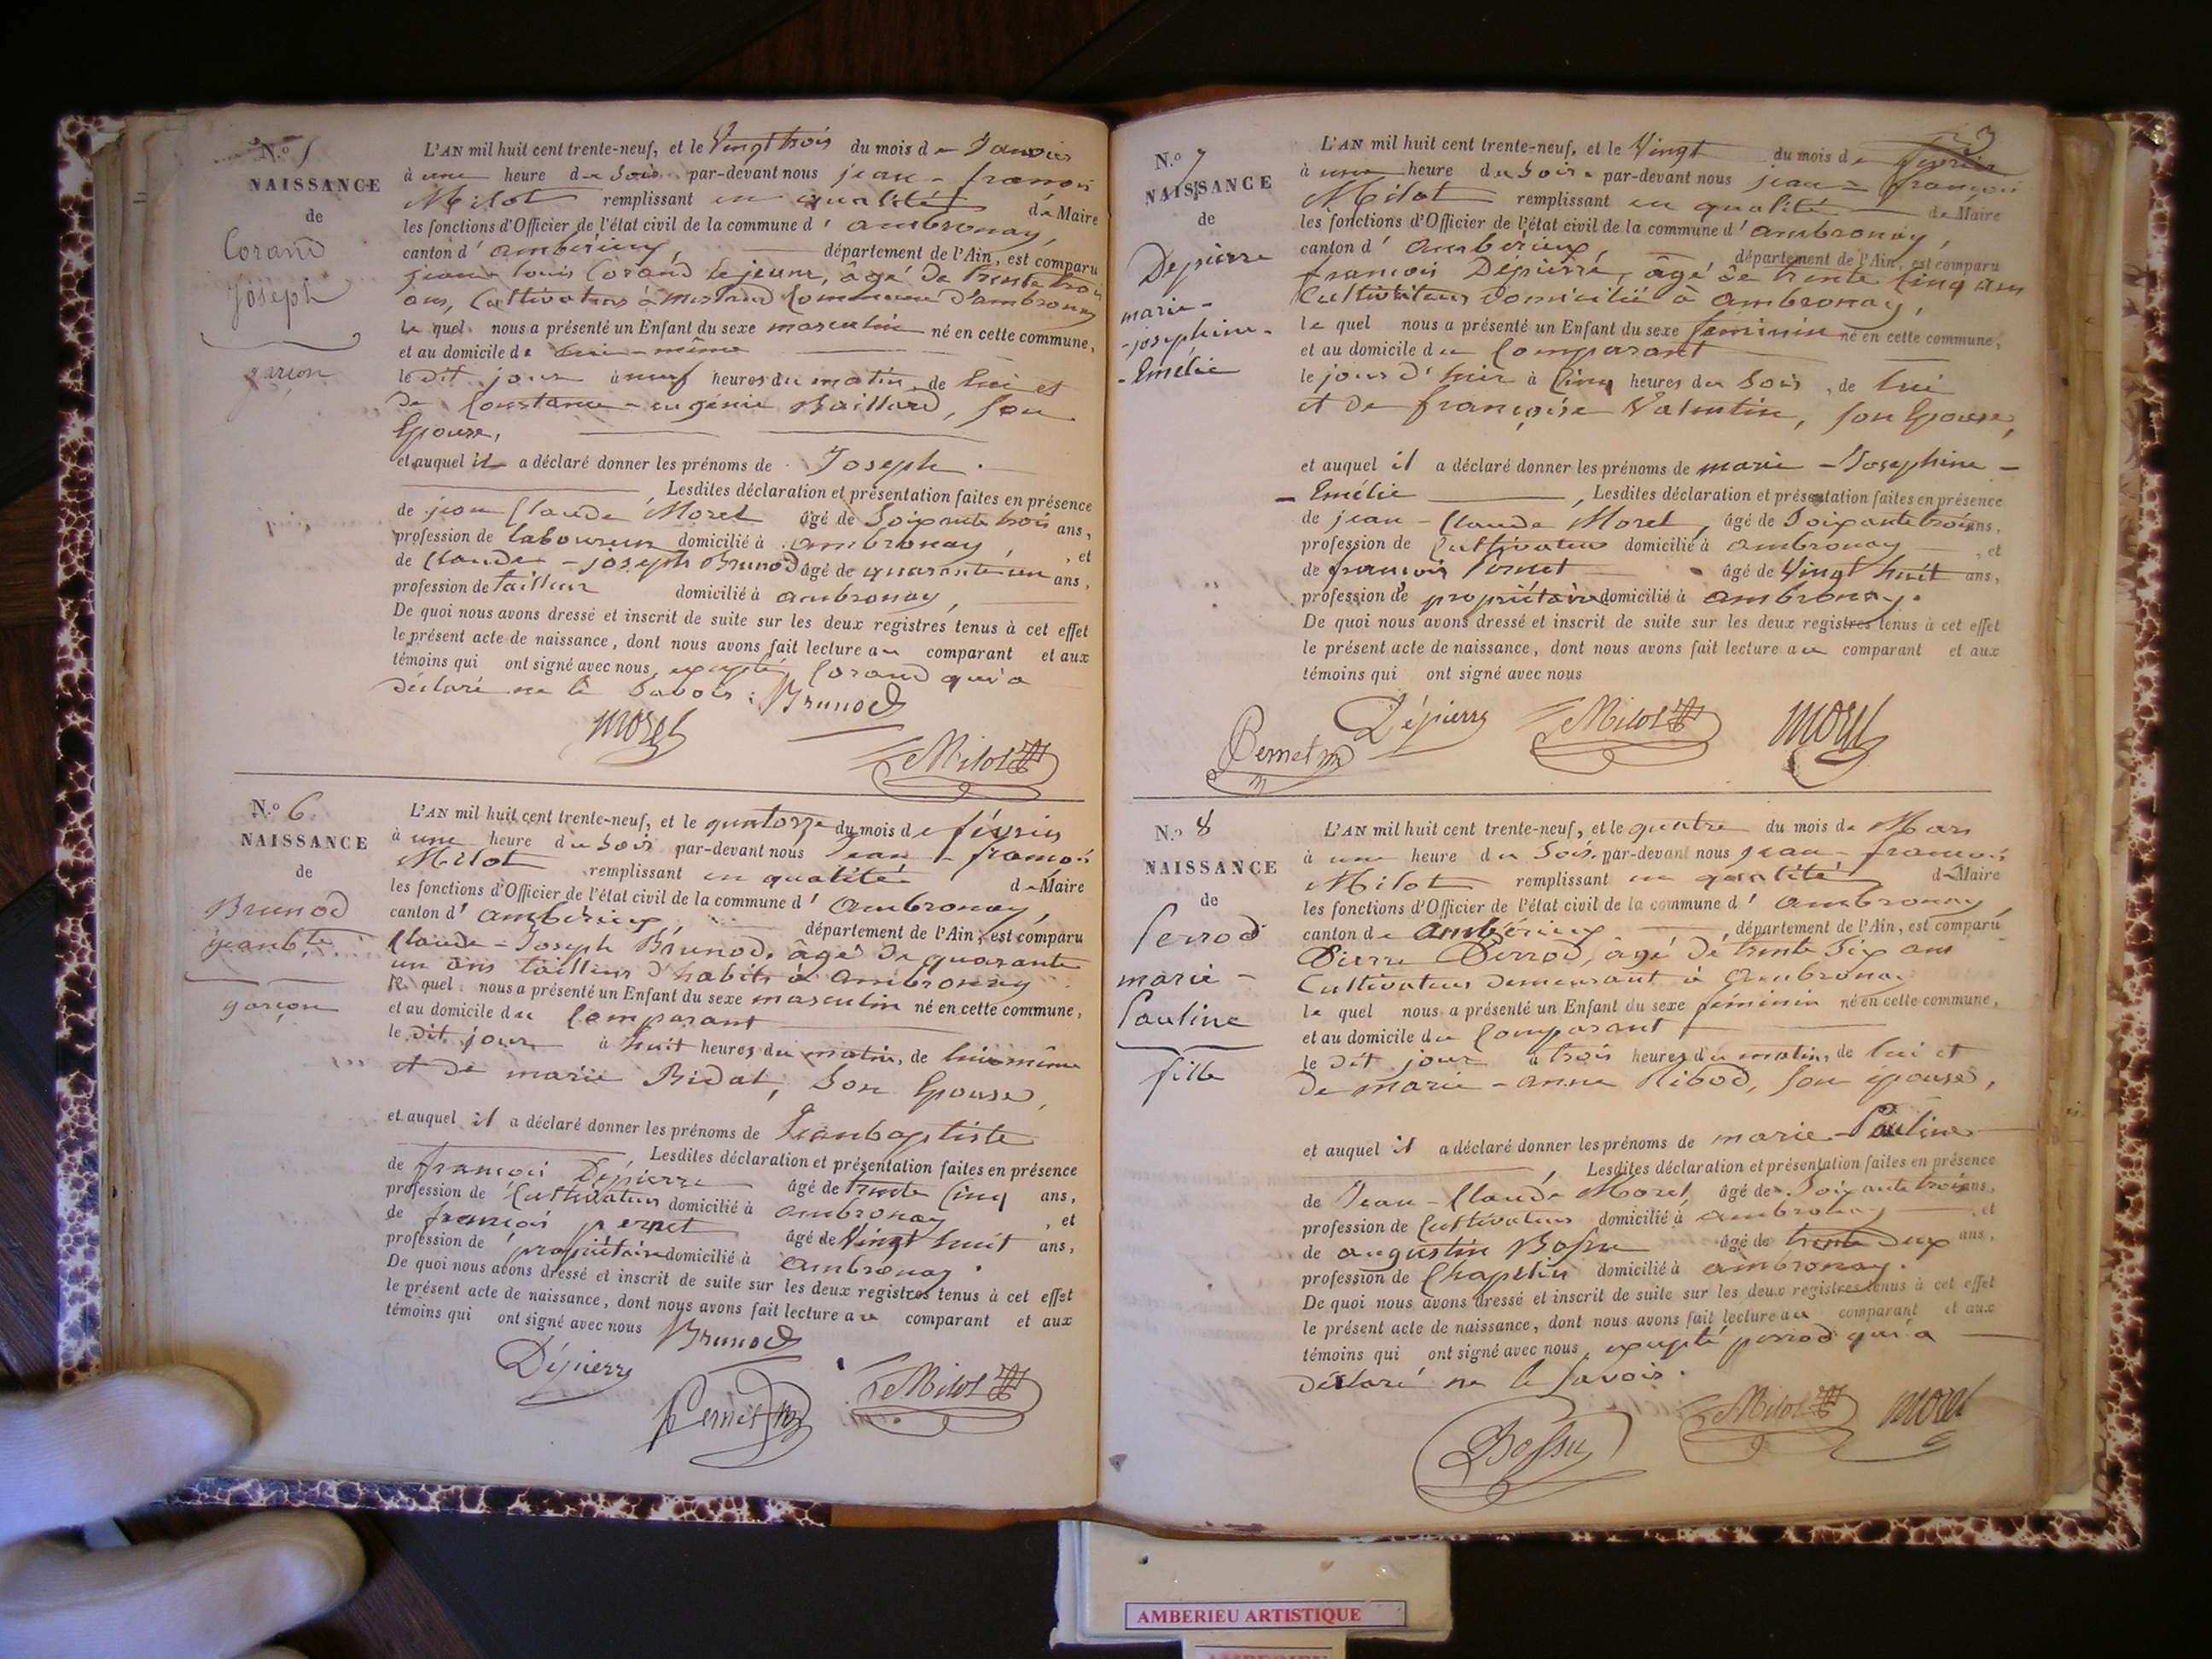 N.o 5
NAISSANCE
de
Corand
Joseph
garçon
L'AN mil huit cent trente-neuf, et le Vingt trois du mois de Janvier
à une heure du Soir par-devant nous jean-françois
Milot remplissant en qualité de Maire
les fonctions d'Officier de l'état civil de la commune d'ambronay,
canton d'ambérieux, département de l'Ain, est comparu
jean-louis Corand le jeune, âgé de trente trois
ans, Cultivateur à Commune d'ambronay
le quel nous a présenté un Enfant du sexe masculin né en cette commune,
et au domicile de lui-même
le dit jour à neuf heures du matin, de lui et
de Constance-eugénie Baillard, Son
Epouse,
et auquel il a déclaré donner les prénoms de Joseph.
Lesdites déclaration et présentation faites en présence
de jean Claude Morel âgé de Soixante trois ans,
profession de laboureur domicilié à ambronay, et
de Claude-joseph Brunod âgé de quarante un ans,
profession de tailleur domicilié à ambronay,
De quoi nous avons dressé et inscrit de suite sur les deux registres tenus à cet effet
le présent acte de naissance, dont nous avons fait lecture au comparant et aux
témoins qui ont signé avec nous, excepté Corand qui a
déclaré ne le Savoir. Brunod
Morel
Milot
N.o 6
NAISSANCE
de
Brunod
jeanbte
garçon
L'AN mil huit cent trente-neuf, et le quatorze du mois de février
à une heure du Soir par-devant nous Jean-françois
Milot remplissant en qualité de Maire
les fonctions d'Officier de l'état civil de la commune d'Ambronay,
canton d'ambérieux, département de l'Ain, est comparu
Claude-Joseph Brunod, âgé de quarante
un ans tailleur d'habits à Ambronay
le quel nous a présenté un Enfant du sexe masculin né en cette commune,
et au domicile du Comparant
le dit jour à huit heures du matin, de lui-même
et de marie Bidal, Son Epouse,
et auquel il a déclaré donner les prénoms de Jeanbaptiste
Lesdites déclaration et présentation faites en présence
de françois Dépierre âgé de trente Cinq ans,
profession de Cultivateur domicilié à ambronay, et
de françois pernet âgé de Vingt huit ans,
profession de propriétaire domicilié à Ambronay.
De quoi nous avons dressé et inscrit de suite sur les deux registres tenus à cet effet
le présent acte de naissance, dont nous avons fait lecture au comparant et aux
témoins qui ont signé avec nous Brunod
Dépierre
Pernet
Milot
3
N.o 7
NAISSANCE
de
Depierre
marie-
-josephine-
-Emélie
L'AN mil huit cent trente-neuf, et le Vingt du mois de février
à une heure du Soir par-devant nous jean-françois
Milot remplissant en qualité de Maire
les fonctions d'Officier de l'état civil de la commune d'ambronay,
canton d'ambérieux, département de l'Ain, est comparu
françois Dépierre, âgé de trente Cinq ans
Cultivateur domicilié à Ambronay,
le quel nous a présenté un Enfant du sexe féminin né en cette commune,
et au domicile du Comparant
le jour d'hier à Cinq heures du Soir, de lui
et de françoise Valentin, Son Epouse,
et auquel il a déclaré donner les prénoms de marie-Josephine-
-Emélie, Lesdites déclaration et présentation faites en présence
de jean-Claude Morel, âgé de Soixante trois ans,
profession de Cultivateur domicilié à ambronay, et
de françois Pernet âgé de Vingt huit ans,
profession de propriétaire domicilié à ambronay.
De quoi nous avons dressé et inscrit de suite sur les deux registres tenus à cet effet
le présent acte de naissance, dont nous avons fait lecture au comparant et aux
témoins qui ont signé avec nous
Pernet Dépierre Milot Morel
N.o 8
NAISSANCE
de
Perrod
marie-
Pauline
fille
L'AN mil huit cent trente-neuf, et le quatre du mois de Mars
à une heure du Soir par-devant nous jean-françois
Milot remplissant en qualité de Maire
les fonctions d'Officier de l'état civil de la commune d'ambronay
canton de ambérieux, département de l'Ain, est comparu
Pierre Perrod, âgé de trente Six ans
Cultivateur demeurant à Ambronay
le quel nous a présenté un Enfant du sexe féminin né en cette commune,
et au domicile du Comparant
le dit jour à trois heures du matin, de lui et
de marie-anne Ribod, Son épouse,
et auquel il a déclaré donner les prénoms de marie-Pauline
Lesdites déclaration et présentation faites en présence
de Jean-Claude Morel, âgé de Soixante trois ans,
profession de Cultivateur domicilié à ambronay, et
de augustin Bossu âgé de trente deux ans,
profession de Chapelier domicilié à ambronay.
De quoi nous avons dressé et inscrit de suite sur les deux registres tenus à cet effet
le présent acte de naissance, dont nous avons fait lecture au comparant et aux
témoins qui ont signé avec nous, excepté perrod qui a
déclaré ne le Savoir.
Bossu Milot Morel
AMBERIEU ARTISTIQUE
AMBERIEU